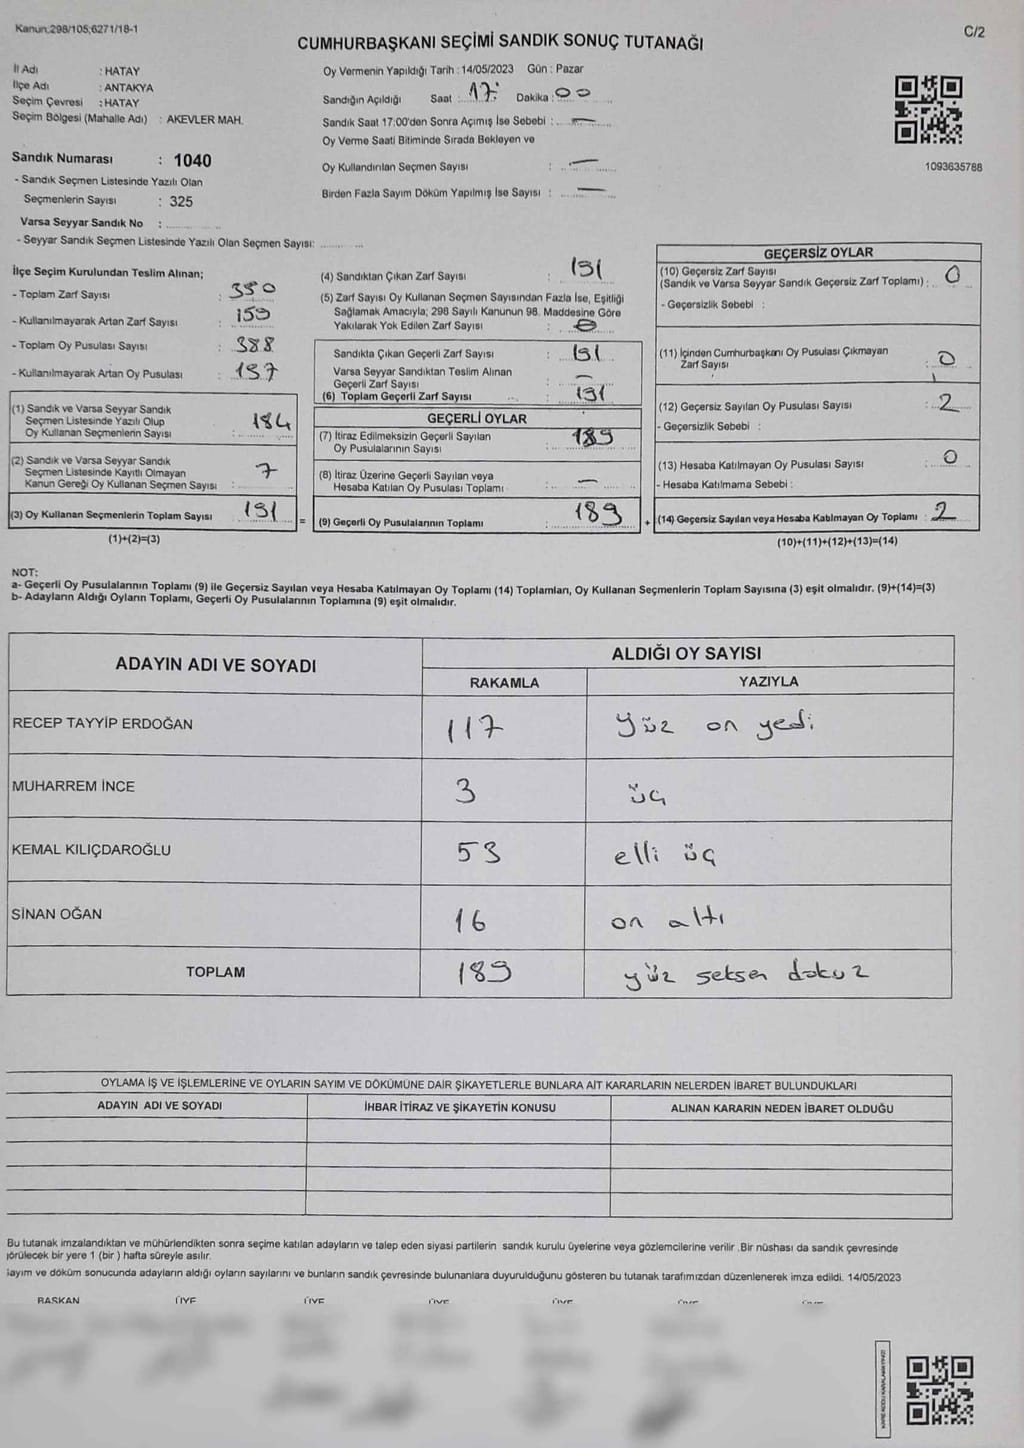 Kanun:298/105;6271/18-1
C/2
CUMHURBAŞKANI SEÇİMİ SANDIK SONUÇ TUTANAĞI
İl Adı : HATAY
İlçe Adı : ANTAKYA
Seçim Çevresi : HATAY
Seçim Bölgesi (Mahalle Adı) : AKEVLER MAH.
Oy Vermenin Yapıldığı Tarih : 14/05/2023 Gün : Pazar
Sandığın Açıldığı Saat : 17: Dakika : 00
Sandık Saat 17:00'den Sonra Açımış İse Sebebi : —
Oy Verme Saati Bitiminde Sırada Bekleyen ve
Oy Kullandırılan Seçmen Sayısı : —
Birden Fazla Sayım Döküm Yapılmış İse Sayısı : —
1093635788
Sandık Numarası : 1040
- Sandık Seçmen Listesinde Yazılı Olan
Seçmenlerin Sayısı : 325
Varsa Seyyar Sandık No :
- Seyyar Sandık Seçmen Listesinde Yazılı Olan Seçmen Sayısı:
İlçe Seçim Kurulundan Teslim Alınan;
- Toplam Zarf Sayısı : 350
- Kullanılmayarak Artan Zarf Sayısı : 159
- Toplam Oy Pusulası Sayısı : 388
- Kullanılmayarak Artan Oy Pusulası : 197
(1) Sandık ve Varsa Seyyar Sandık
Seçmen Listesinde Yazılı Olup
Oy Kullanan Seçmenlerin Sayısı : 184
(2) Sandık ve Varsa Seyyar Sandık
Seçmen Listesinde Kayıtlı Olmayan
Kanun Gereği Oy Kullanan Seçmen Sayısı : 7
(3) Oy Kullanan Seçmenlerin Toplam Sayısı : 191
(1)+(2)=(3)
(4) Sandıktan Çıkan Zarf Sayısı : 191
(5) Zarf Sayısı Oy Kullanan Seçmen Sayısından Fazla İse, Eşitliği
Sağlamak Amacıyla; 298 Sayılı Kanunun 98. Maddesine Göre
Yakılarak Yok Edilen Zarf Sayısı : 0
Sandıkta Çıkan Geçerli Zarf Sayısı : 191
Varsa Seyyar Sandıktan Teslim Alınan
Geçerli Zarf Sayısı : —
(6) Toplam Geçerli Zarf Sayısı : 191
GEÇERLİ OYLAR
(7) İtiraz Edilmeksizin Geçerli Sayılan
Oy Pusulalarının Sayısı : 189
(8) İtiraz Üzerine Geçerli Sayılan veya
Hesaba Katılan Oy Pusulası Toplamı : —
= (9) Geçerli Oy Pusulalarının Toplamı : 189
GEÇERSİZ OYLAR
(10) Geçersiz Zarf Sayısı
(Sandık ve Varsa Seyyar Sandık Geçersiz Zarf Toplamı) : 0
- Geçersizlik Sebebi :
(11) İçinden Cumhurbaşkanı Oy Pusulası Çıkmayan
Zarf Sayısı : 0
(12) Geçersiz Sayılan Oy Pusulası Sayısı : 2
- Geçersizlik Sebebi :
(13) Hesaba Katılmayan Oy Pusulası Sayısı : 0
- Hesaba Katılmama Sebebi :
+ (14) Geçersiz Sayılan veya Hesaba Katılmayan Oy Toplamı : 2
(10)+(11)+(12)+(13)=(14)
NOT:
a- Geçerli Oy Pusulalarının Toplamı (9) ile Geçersiz Sayılan veya Hesaba Katılmayan Oy Toplamı (14) Toplamları, Oy Kullanan Seçmenlerin Toplam Sayısına (3) eşit olmalıdır. (9)+(14)=(3)
b- Adayların Aldığı Oyların Toplamı, Geçerli Oy Pusulalarının Toplamına (9) eşit olmalıdır.
ADAYIN ADI VE SOYADI
ALDIĞI OY SAYISI
RAKAMLA YAZIYLA
RECEP TAYYİP ERDOĞAN 117 yüz on yedi
MUHARREM İNCE 3 üç
KEMAL KILIÇDAROĞLU 53 elli üç
SİNAN OĞAN 16 on altı
TOPLAM 189 yüz seksen dokuz
OYLAMA İŞ VE İŞLEMLERİNE VE OYLARIN SAYIM VE DÖKÜMÜNE DAİR ŞİKAYETLERLE BUNLARA AİT KARARLARIN NELERDEN İBARET BULUNDUKLARI
ADAYIN ADI VE SOYADI İHBAR İTİRAZ VE ŞİKAYETİN KONUSU ALINAN KARARIN NEDEN İBARET OLDUĞU
Bu tutanak imzalandıktan ve mühürlendikten sonra seçime katılan adayların ve talep eden siyasi partilerin sandık kurulu üyelerine veya gözlemcilerine verilir .Bir nüshası da sandık çevresinde
görülecek bir yere 1 (bir ) hafta süreyle asılır.
Sayım ve döküm sonucunda adayların aldığı oyların sayılarını ve bunların sandık çevresinde bulunanlara duyurulduğunu gösteren bu tutanak tarafımızdan düzenlenerek imza edildi. 14/05/2023
BAŞKAN ÜYE ÜYE ÜYE ÜYE